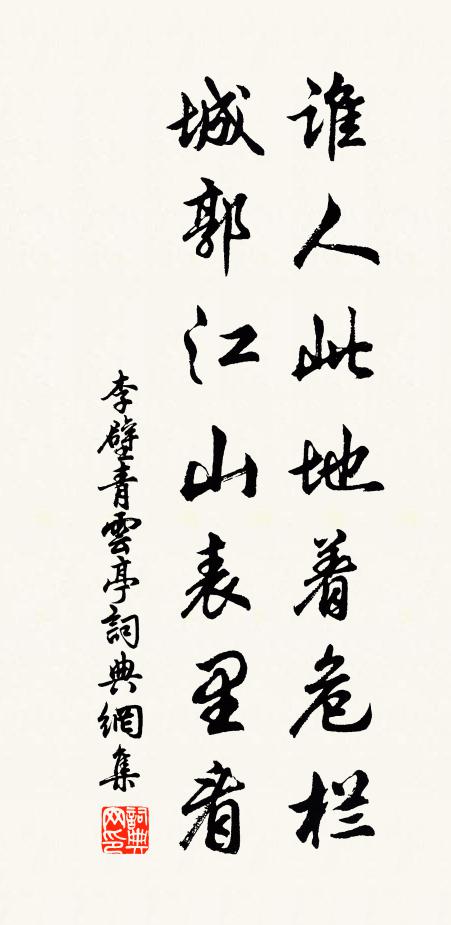 谁人此地着危栏
城郭江山表里看
李壁青雲亭詞典網集
詞典网印